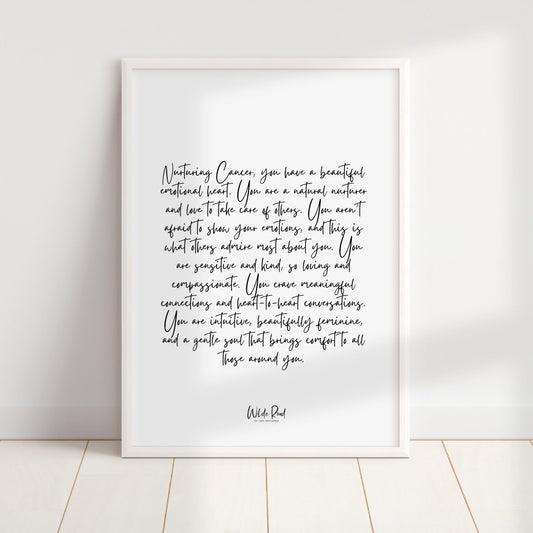 Nurturing Cancer, you have a beautiful
emotional heart. You are a natural nurturer
and love to take care of others. You aren't
afraid to show your emotions, and this is
what others admire most about you. You
are sensitive and kind, so loving and
compassionate. You crave meaningful
connections and heart-to-heart conversations.
You are intuitive, beautifully feminine,
and a gentle soul that brings comfort to all
those around you.
Wilde Road